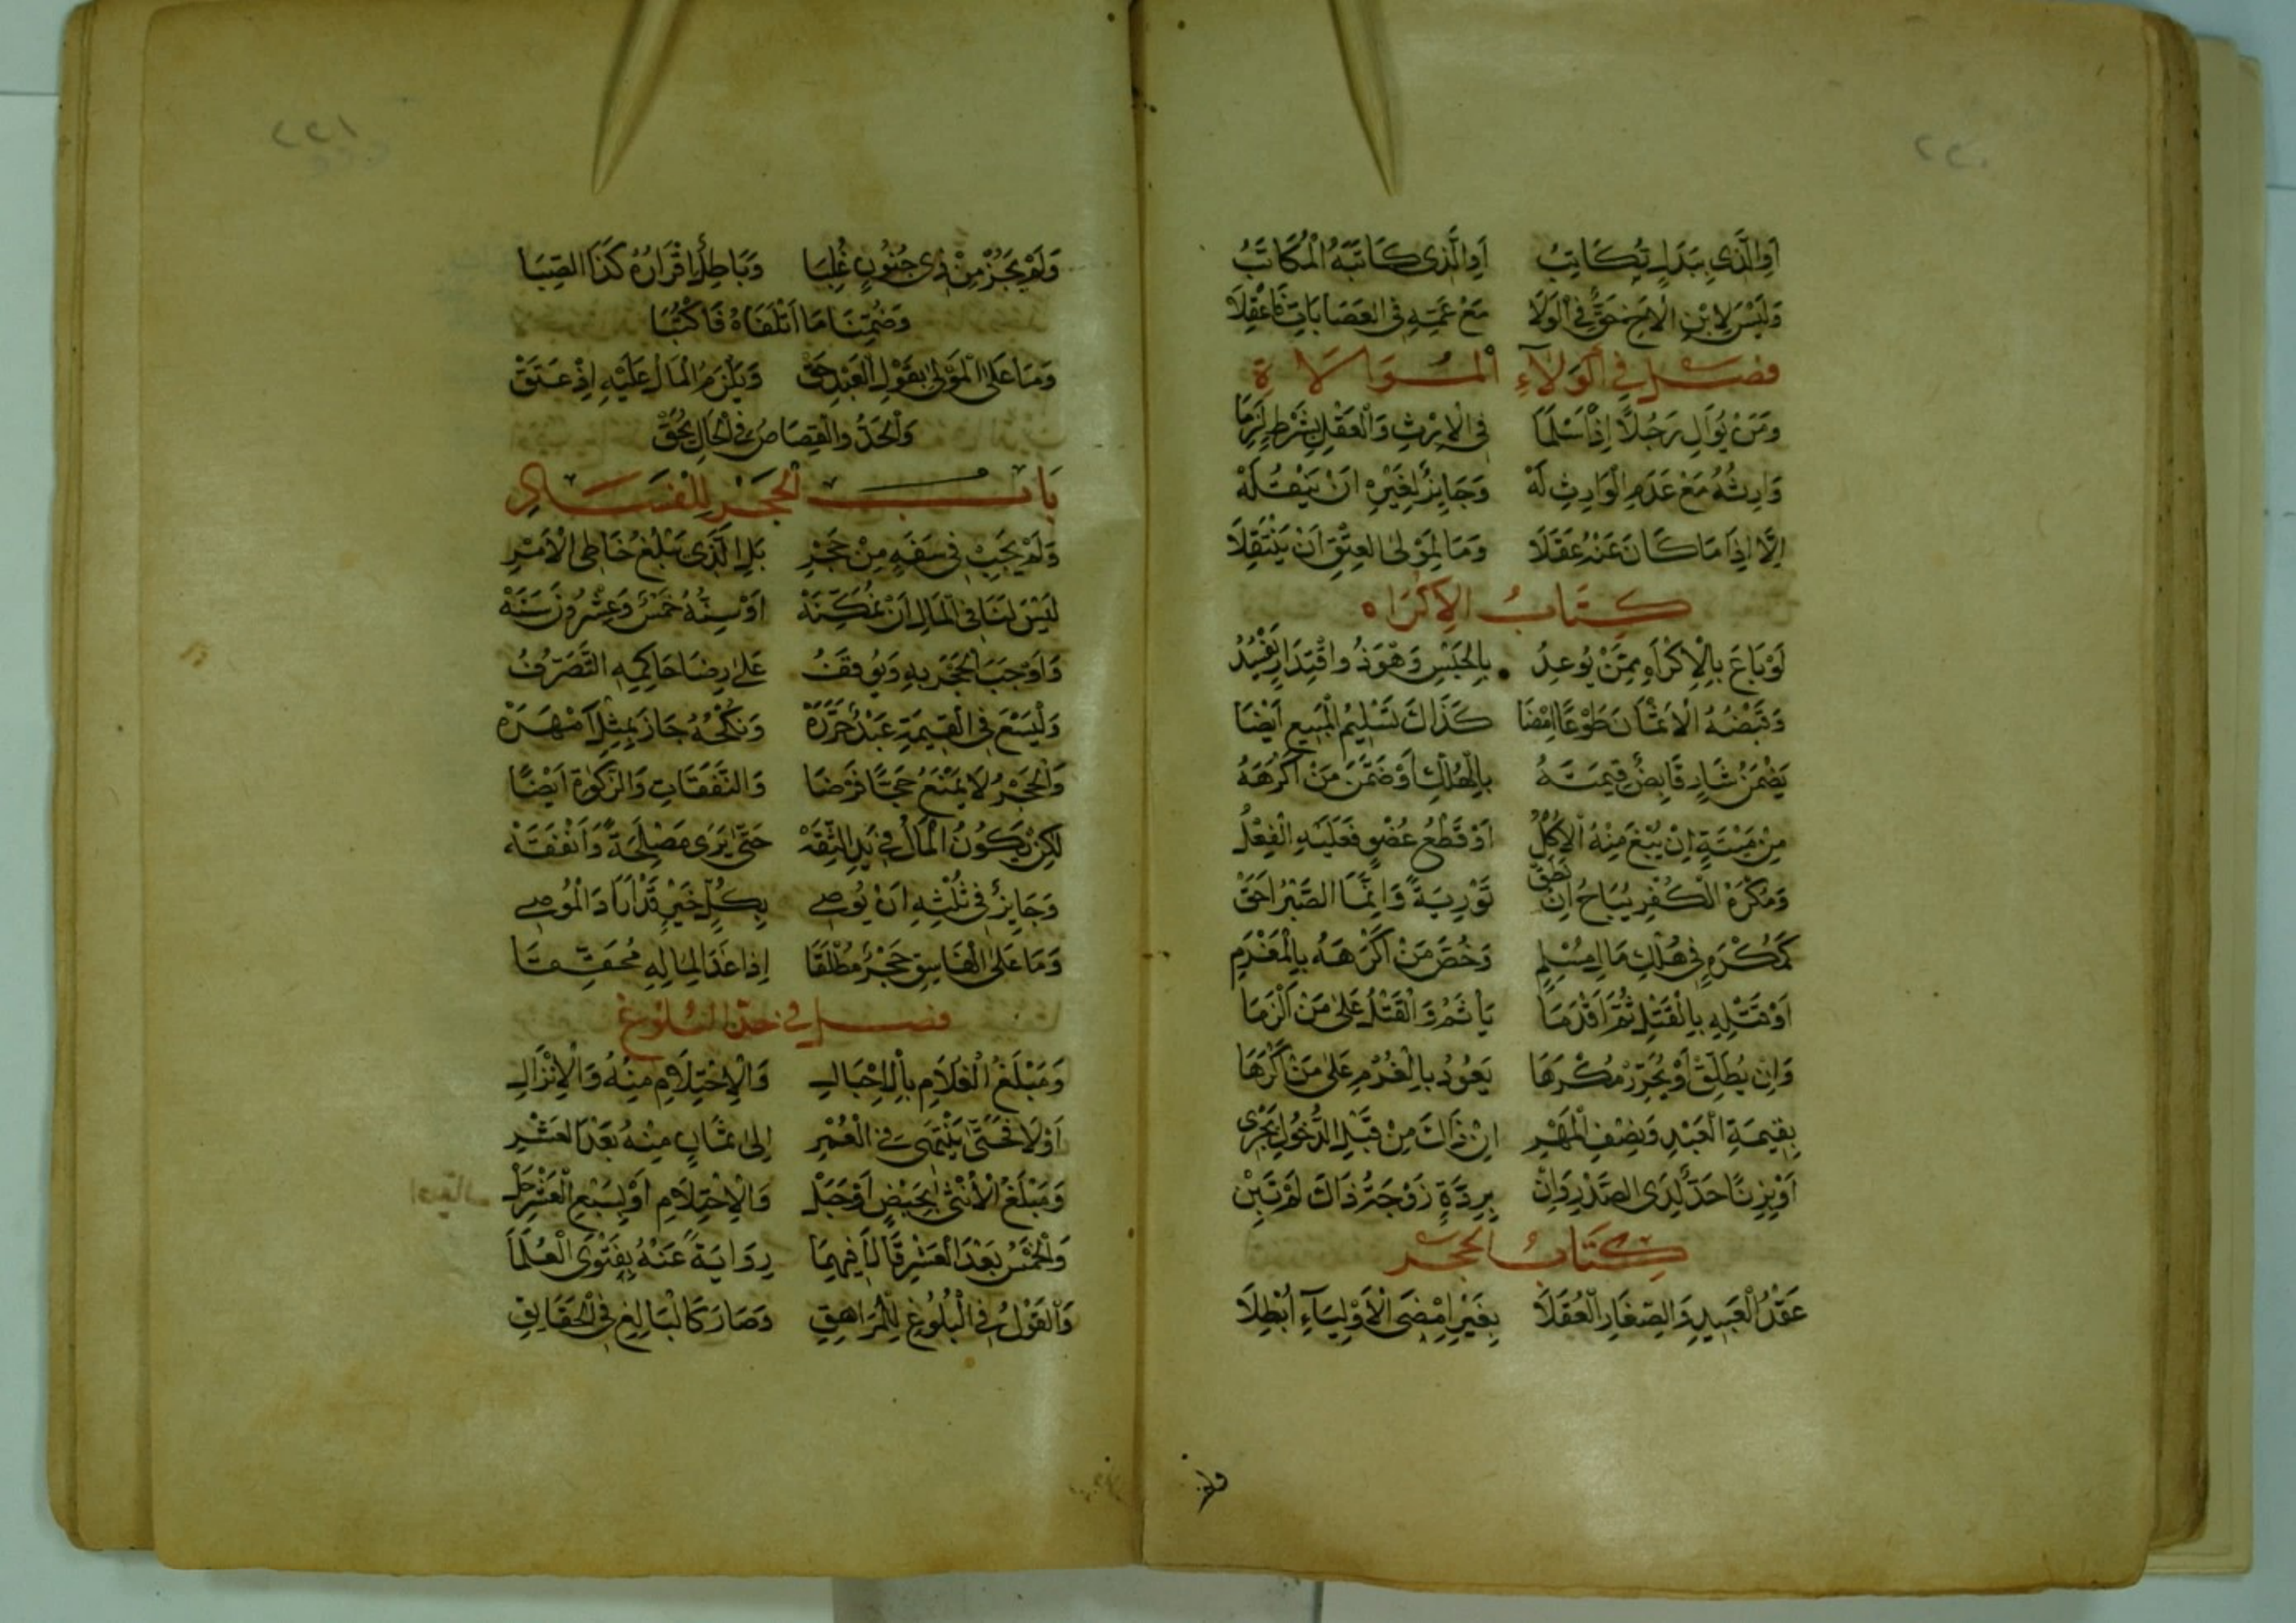 ٢٢٠
أَوِ الَّذِي بِبَدَلٍ تُكَاتِبُ أَوِ الَّذِي كَاتَبَهُ الْمُكَاتَبُ
وَلَيْسَ لِابْنِ الْأَخِ حَقٌّ فِي الْوَلَا مَعْ عَمِّهِ فِي العَصَابَاتِ فَاعْقِلَا
فصل في الْوَلَآءِ الْمُوَالَاةِ
وَمَنْ يُوَالِ رَجُلًا إِذْ أَسْلَمَا فِي الْإِرْثِ وَالْعَقْلِ بِشَرْطٍ لَزِمَا
وَارِثُهُ مَعْ عَدَمِ الْوَارِثِ لَهْ وَجَايِزٌ لِغَيْرِهِ أَنْ يَنْقُلَهْ
إِلَّا إِذَا مَا كَانَ عَنْهُ عَقَلَا وَمَا لِمَوْلَى العِتْقِ أَنْ يَنْتَقِلَا
كِتَابُ الإِكْرَاه
لَوْ بَاعَ بِالْإِكْرَاهِ مِمَّنْ يُوعِدُ بِالحَبْسِ وَهْوَ ذُو اقْتِدَارٍ يَفْسُدُ
وَقَبْضُهُ الْأَثْمَانَ طَوْعًا إِمْضَا كَذَاكَ تَسْلِيمُ الْمَبِيعِ أَيْضَا
يَضْمَنُ شَارٍ قَابِضٌ قِيمَتَهُ بِالْهُلْكِ أَوْ ضَمَّنَ مَنْ أَكْرَهَهُ
مِنْ مَيْتَةٍ إِنْ يُبْغَ مِنْهُ الْأَكْلُ أَوْ قَطْعُ عُضْوٍ فَعَلَيْهِ الْفِعْلُ
وَمُكْرَهُ الْكُفْرِ يُبَاحُ إِنْ نَطَقْ تَوْرِيَةً وَإِنَّمَا الصَّبْرُ أَحَقّْ
كَمُكْرَهٍ فِي هُلْكِ مَالِ مُسْلِمٍ وَخُصَّ مَنْ أَكْرَهَهُ بِالْمَغْرَمِ
أَوْ قَتْلِهِ بِالْقَتْلِ ثُمَّ أَقْدَمَا يَأْثَمُ وَالْقَتْلُ عَلَى مَنْ أَلْزَمَا
وَإِنْ يُطَلِّقْ أَوْ يُحَرِّرْ مُكْرَهَا يَعُودُ بِالْغُرْمِ عَلَى مَنْ أَكْرَهَا
بِقِيمَةِ الْعَبْدِ وَنِصْفِ الْمَهْرِ إِنْ ذَاكَ مِنْ قَبْلِ الدُّخُولِ يَجْرِي
أَوْ بِزِنًا حَدٌّ لَدَى الصَّدْرِ وَإِنْ بِرِدَّةٍ زَوْجَةُ ذَاكَ لَمْ تَبِنْ
كِتَابُ الحَجْر
عَقْدُ الْعَبِيدِ وَالصِّغَارِ الْعُقَلَا بِغَيْرِ إِمْضَى الْأَوْلِيَآءِ أُبْطِلَا
ولم
٢٢١
وَلَمْ يَجُزْ مِنْ ذِي جُنُونٍ غُلِبَا وَبَاطِلٌ إِقْرَارُهُ كَذَا الصِّبَا
وَضُمِّنَا مَا أَتْلَفَاهُ فَاكْتُبَا
وَمَا عَلَى الْمَوْلَى بِقَوْلِ الْعَبْدِ حَقّْ وَيَلْزَمُ الْمَالُ عَلَيْهِ إِذْ عَتَقْ
وَالْحَدُّ وَالْقِصَاصُ فِي الْحَالِ يُحَقّْ
بَابُ الْحَجْرِ لِلْفَسَادِ
وَلَمْ يَجِبْ فِي سَفَهٍ مِنْ حَجْرِ بَلِ الَّذِي يَبْلُغُ خَاطِي الْأَمْرِ
لَيْسَ لَنَا فِي الْمَالِ أَنْ نُمَكِّنَهْ أَوْ سِنُّهُ خَمْسٌ وَعِشْرُونَ سَنَهْ
وَأَوْجَبَا الحَجْرَ بِهِ وَيُوقَفُ عَلَى رِضَا حَاكِمِهِ التَّصَرُّفُ
وَلْيَسْعَ فِي الْقِيمَةِ عَبْدٌ حَرَّرَهْ وَنُكْحُهُ جَازَ بِمِثْلٍ أَمْهَرَهْ
وَالْحَجْرُ لَا يَمْنَعُ حَجًّا فُرِضَا وَالنَّفَقَاتِ وَالزَّكَوٰةَ أَيْضًا
لٰكِنْ يَكُونُ الْمَالُ فِي يَدِ الثِّقَهْ حَتَّى يَرَى مَصْلَحَةً وَأَنْفَقَهْ
وَجَايِزٌ فِي ثُلْثِهِ أَنْ يُوصِي بِكُلِّ خَيْرٍ قَدْ أَرَادَ الْمُوصِي
وَمَا عَلَى الْفَاسِقِ حَجْرٌ مُطْلَقَا إِذَا غَدَا لِمَالِهِ مُحَقِّقَا
فصل في حَدِّ الْبُلُوغِ
وَمَبْلَغُ الْغُلَامِ بِالْإِحْبَالِ وَالْإِحْتِلَامِ مِنْهُ وَالْإِنْزَالِ
أَوْلَا فَحَتَّى يَنْتَهِي فِي الْعُمْرِ إِلَى ثَمَانٍ مِنْهُ بَعْدَ الْعَشْرِ
وَمَبْلَغُ الْأُنْثَى بِحَيْضٍ أَوْ حَبَلْ وَالْإِحْتِلَامِ أَوْ لِسَبْعِ الْعَشْرِ حَلّْ
وَالْخَمْسُ بَعْدَ الْعَشْرِ قَالَا فِيهِمَا رِوَايَةً عَنْهُ بِفَتْوَى الْعُلَمَا
وَالْقَوْلُ فِي الْبُلُوغِ لِلْمُرَاهِقِ وَصَارَ كَالْبَالِغِ فِي الْحَقَايِقِ